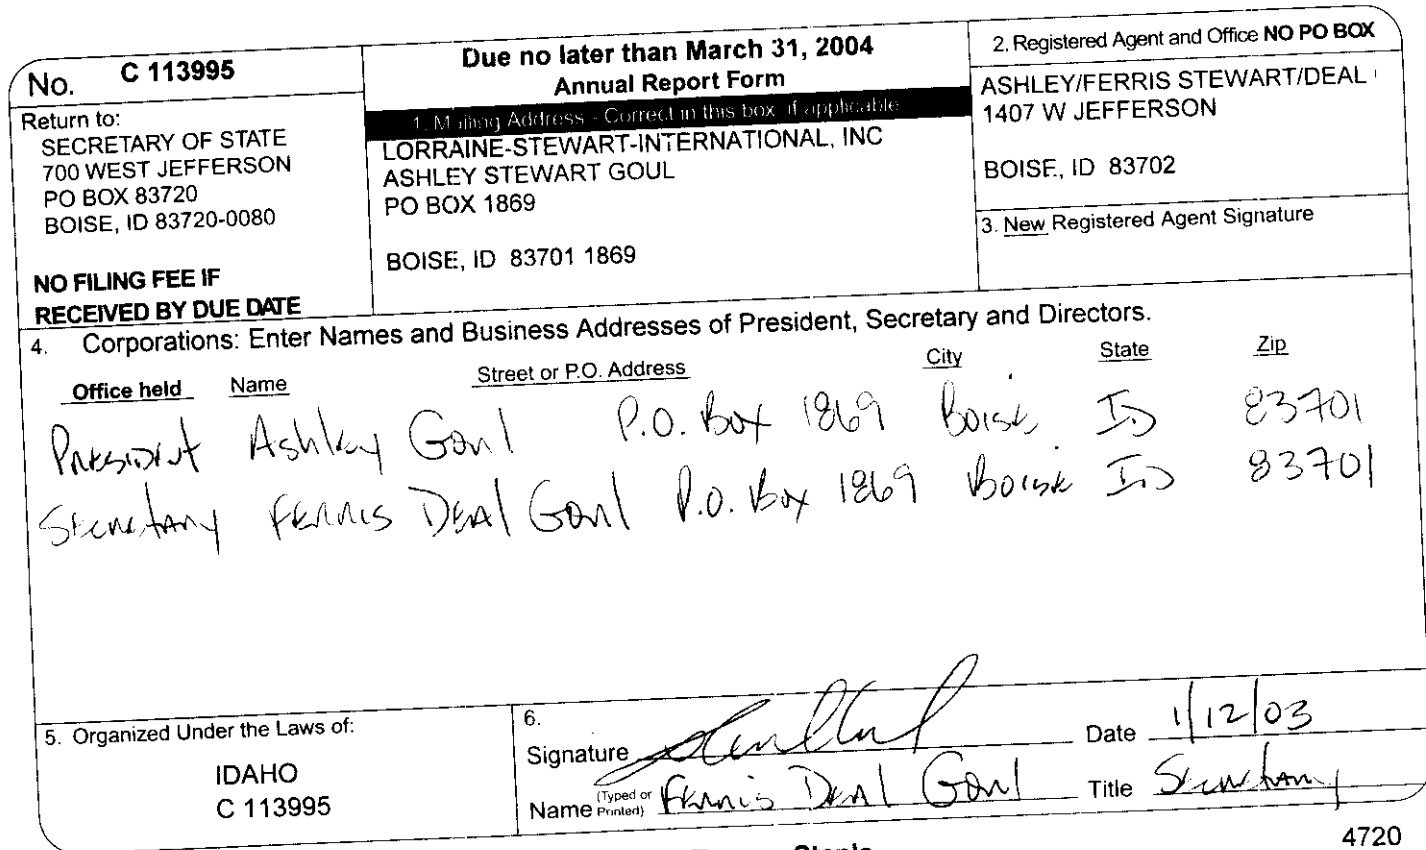 No. C 113995
Return to:
SECRETARY OF STATE
700 WEST JEFFERSON
PO BOX 83720
BOISE, ID 83720-0080
NO FILING FEE IF
RECEIVED BY DUE DATE
Due no later than March 31, 2004
Annual Report Form
1. Mailing Address - Correct in this box if applicable
LORRAINE-STEWART-INTERNATIONAL, INC
ASHLEY STEWART GOUL
PO BOX 1869
BOISE, ID 83701 1869
2. Registered Agent and Office NO PO BOX
ASHLEY/FERRIS STEWART/DEAL
1407 W JEFFERSON
BOISE, ID 83702
3. New Registered Agent Signature
4. Corporations: Enter Names and Business Addresses of President, Secretary and Directors.
Office held Name Street or P.O. Address City State Zip
President Ashley Goul P.O. Box 1869 Boise ID 83701
Secretary Ferris Deal Goul P.O. Box 1869 Boise ID 83701
5. Organized Under the Laws of:
IDAHO
C 113995
6.
Signature Date 1/12/03
Name (Typed or Printed) Ferris Deal Goul Title Secretary
4720